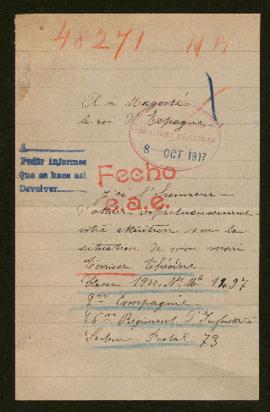 48271
A sa Majesté
le roi d'Espagne
8 OCT 1917
Pedir informes
Que se hace así
Devolver.
Fecho
e.a.e.
J'ai l'honneur
d'attirer respectueusement
votre attention sur la
situation de mon mari
Théodore
Classe 1900. Nº Mle 1297
9me Compagnie
Regiment d'Infanterie
Secteur Postal 73